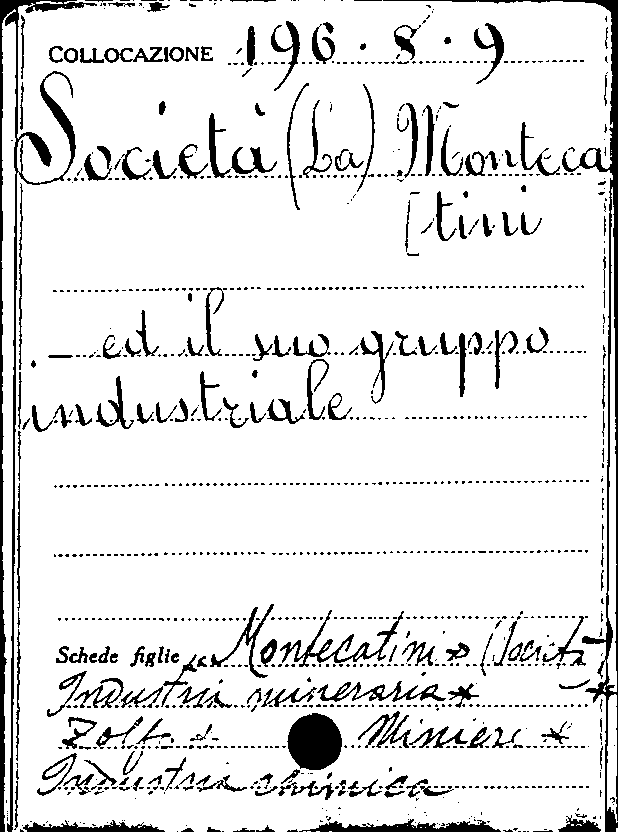 COLLOCAZIONE 196.8.9
Società (La) Monteca=
[tini
. — ed il suo gruppo
industriale
Schede figlie Montecatini * (Società)
Industria mineraria * *
Zolfo * Miniere *
Industria chimica